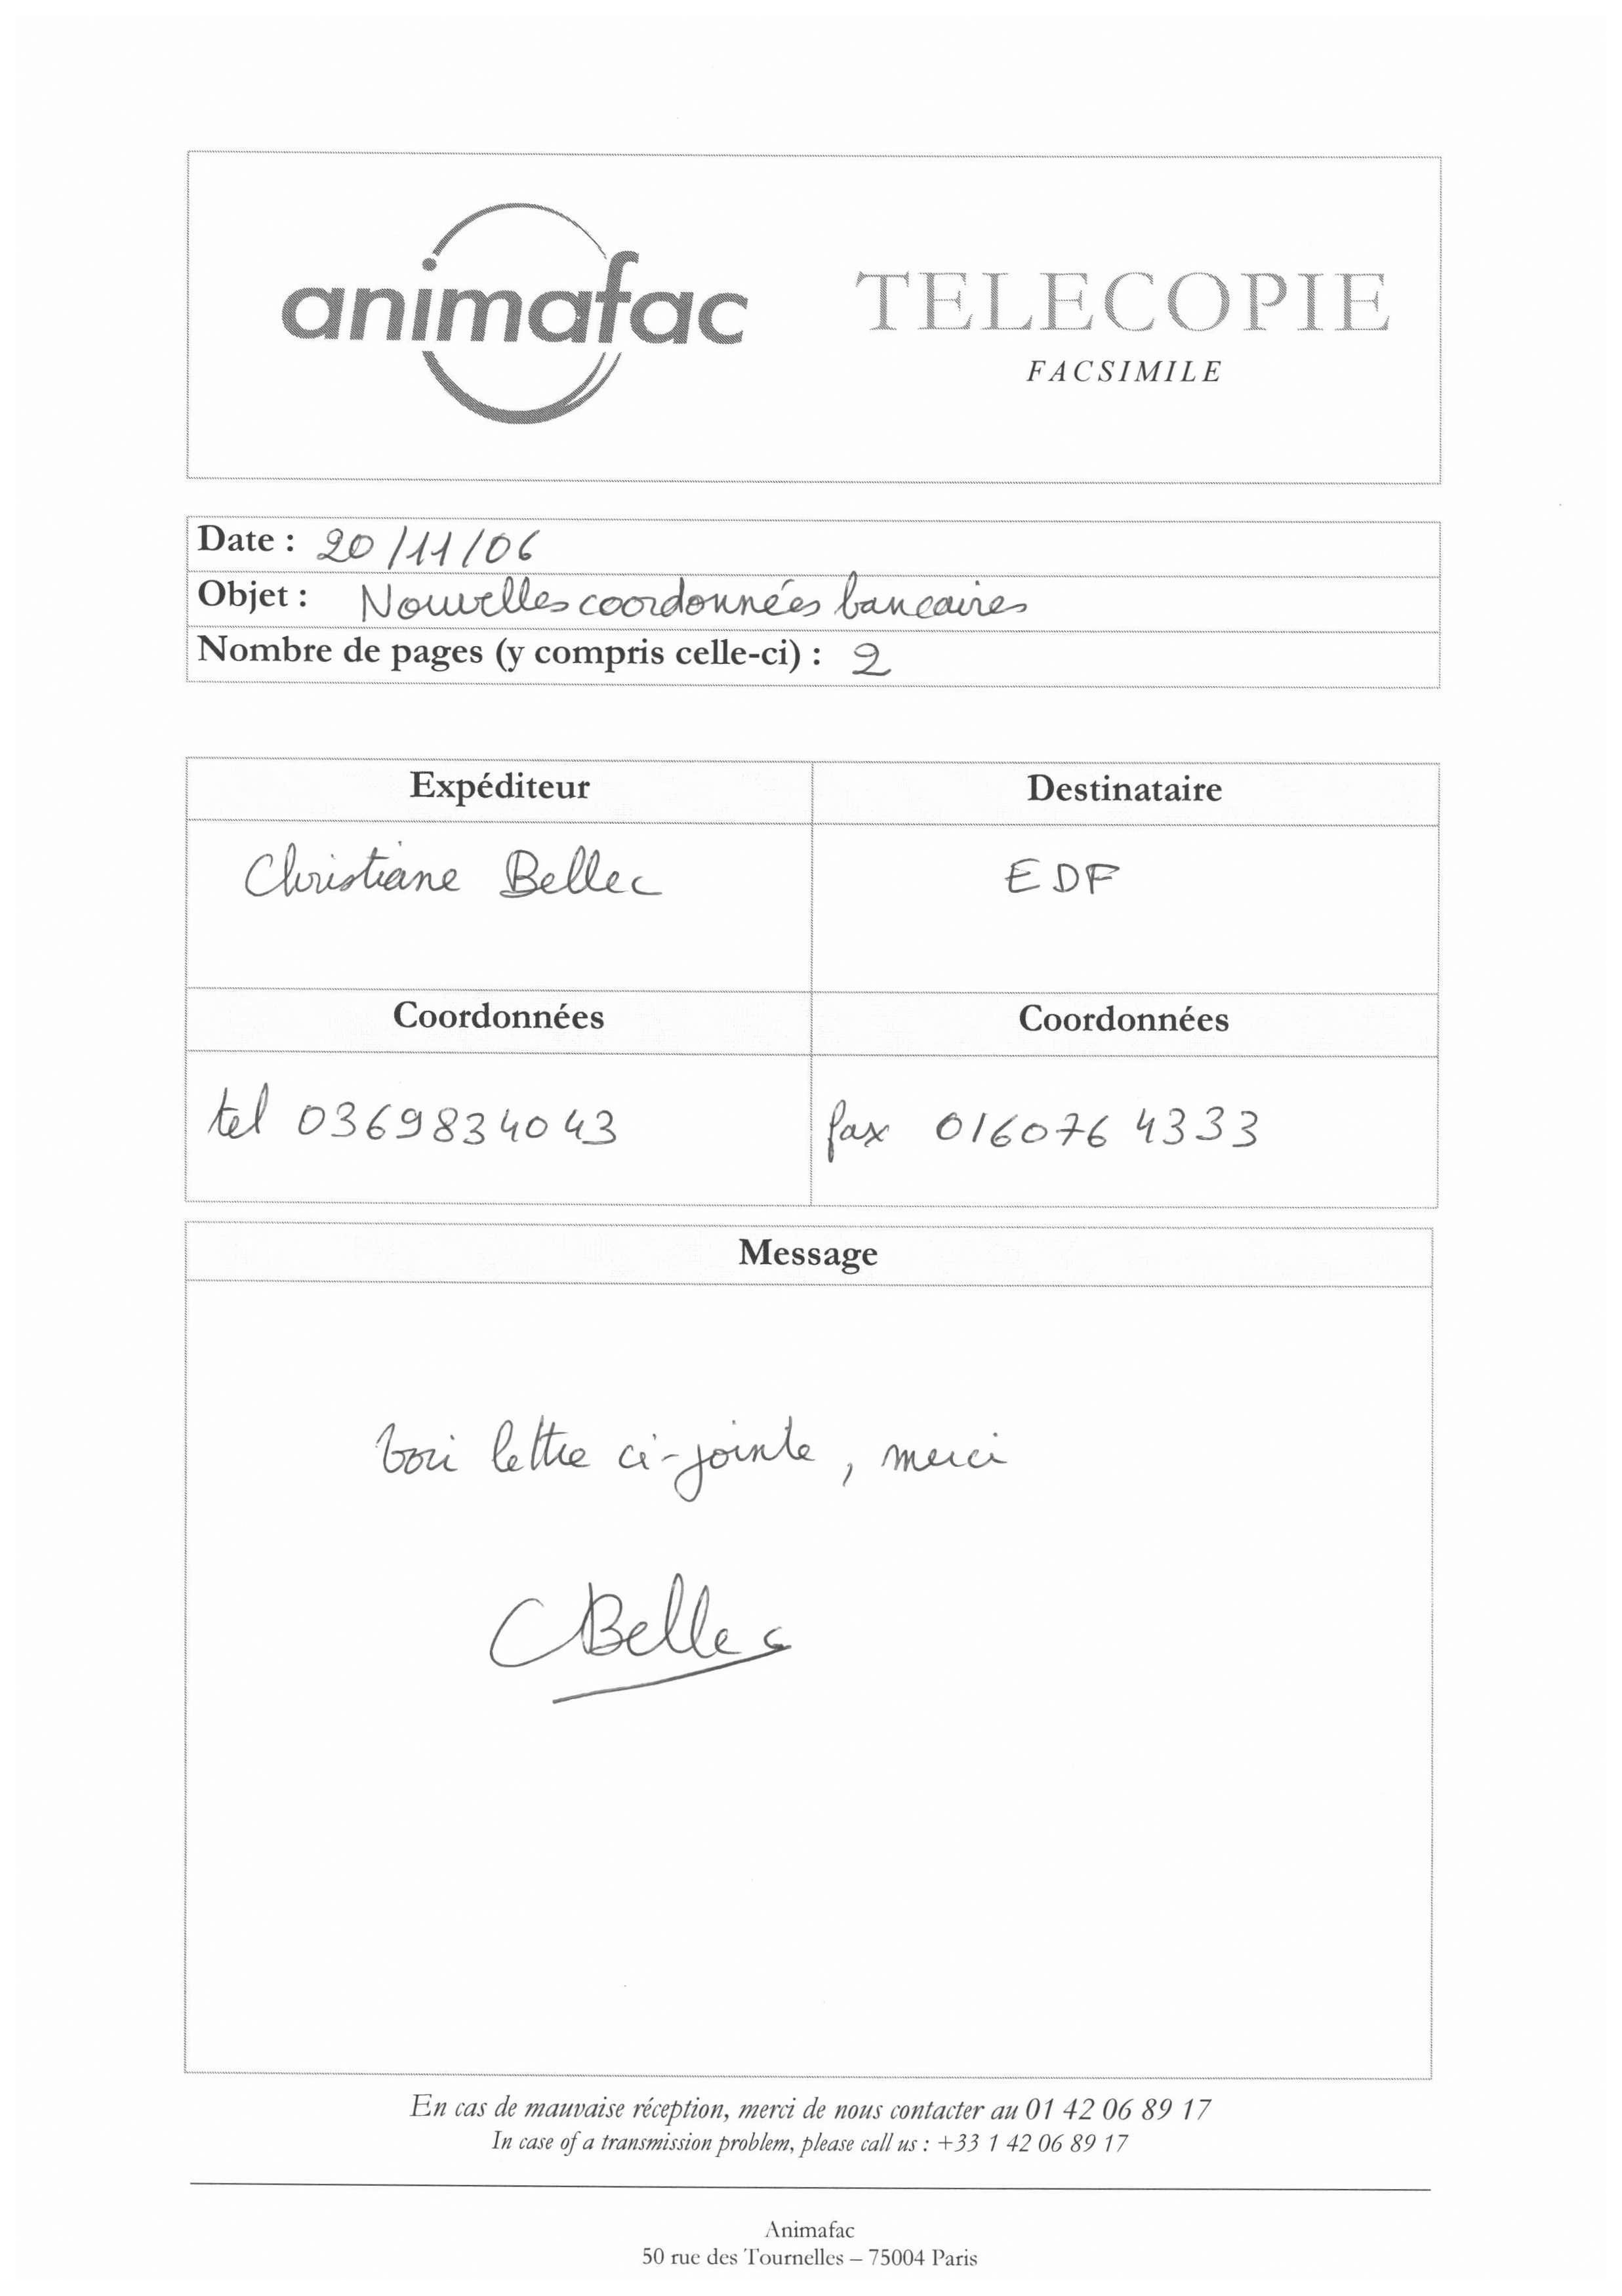 animafac
TELECOPIE
FACSIMILE
Date : 20/11/06
Objet : Nouvelles coordonnées bancaires
Nombre de pages (y compris celle-ci) : 2
Expéditeur Destinataire
Christiane Bellec EDF
Coordonnées Coordonnées
tel 0369834043 fax 0160764333
Message
voir lettre ci-jointe, merci
CBellec
En cas de mauvaise réception, merci de nous contacter au 01 42 06 89 17
In case of a transmission problem, please call us : +33 1 42 06 89 17
Animafac
50 rue des Tournelles – 75004 Paris